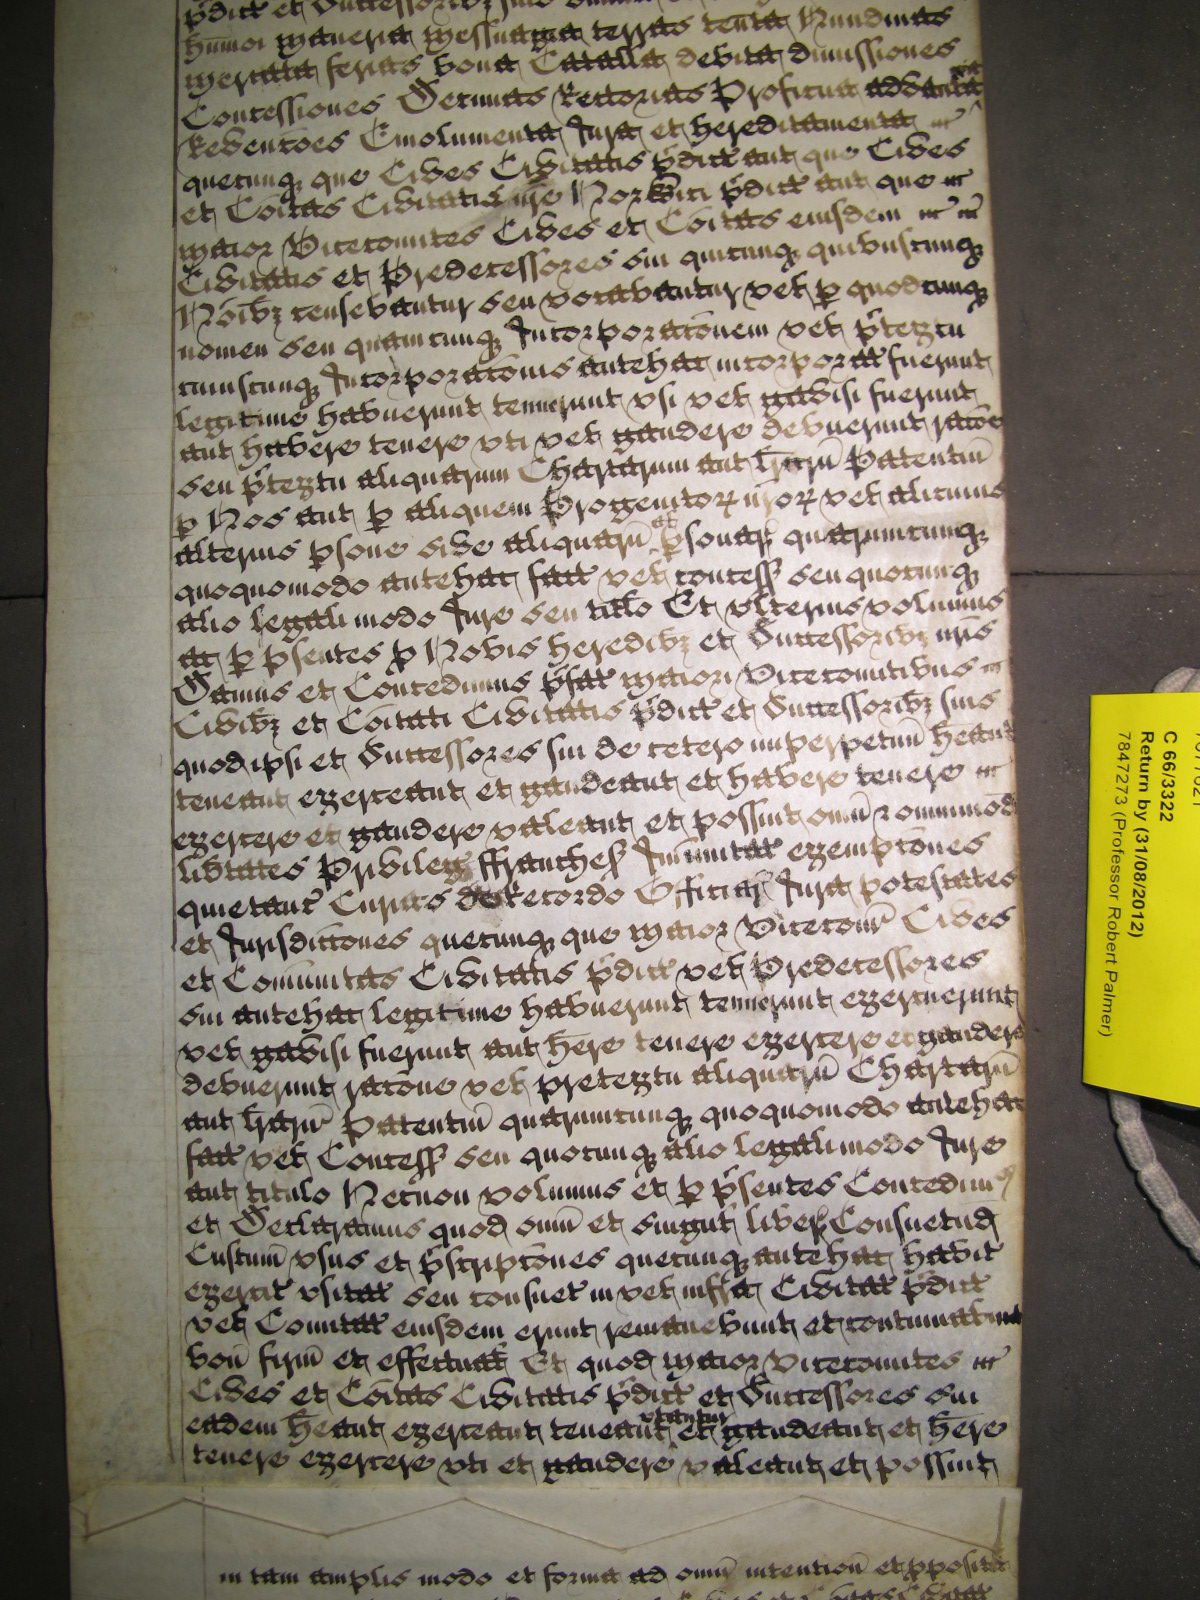 p̄dict et Successoribȝ suis
hūmoi maneria messuagia terras tenta Nundinas
mercata ferias bona Catalla debita dimissiones
Concessiones Decimas Rectorias Proficua advanta
Revenc̄ōes Emolumenta Jura et hereditamenta
quecunqȝ que Cives Civitatis p̄dict aut que Cives
et Cōitas Civitatis nr̄e Norwici p̄dict aut que
maior Vicecomites Cives et Cōitas eiusdem
Civitatis et Predecessores sui quicunqȝ quibuscunqȝ
Nōibȝ censebantur seu vocabantur vel p quodcunqȝ
nomen seu quamcunqȝ Incorporac̄onem vel p̄textu
cuiuscunqȝ Incorporac̄onis antehac incorporat fuerunt
legitime habuerunt tenuerunt usi vel gavisi fuerunt
aut habere tenere uti vel gaudere debuerunt rac̄oe
seu p̄textu aliquarum Chartarum aut l̄rarū Patentiū
p Nos aut p aliquem Progenitoꝝ nr̄oꝝ vel alicuius
alterius psone sive aliquarū psonaꝝ quarumcunqȝ
quoquomodo antehac fact vel concess seu quocunqȝ
alio legali modo Jure seu titlo Et ulterius volumus
ac p p̄sentes p Nobis heredibȝ et Successoribȝ nr̄is
Damus et Concedimus p̄fat maiori Vicecomitibus
Civibȝ et Cōitati Civitatis p̄dict et Successoribȝ suis
quod ipsi et Successores sui de cetero imperpetuū hēant
teneant exerceant et gaudeant et habere tenere
exercere et gaudere valeant et possint omīa omnimod
lib̄tates Privileg ffranches Imūnitat exempc̄ones
quietanc̄ Curias de Recordo Officiar Jura potestates
et Jurisdicc̄ones quecunqȝ que maior Vicecom̄ Cives
et Com̄unitas Civitatis p̄dict vel Predecessores
sui antehac legitime habuerunt tenuerunt exercuerunt
vel gavisi fuerunt aut hēre tenere exercere et gaudere
debuerunt rac̄one vel pretextu aliquarū Chartarū
aut l̄rarū Patentiū quarumcunqȝ quoquomodo antehac
fact vel Concess seu quocunqȝ alio legali modo Jure
aut titulo Necnon volumus et p p̄sentes Concedim9
et Declaramus quod omīa et singul liber Consuetud
Custum̄ usus et p̄scripc̄ones quecunqȝ antehac habit
exercit usitat seu consuet in vel infra Civitat p̄dict
vel Comitat eiusdem erunt remanebunt et continuabunt
bon̄ firm̄ et effectual Et quod maior vicecomites
Cives et Cōitas Civitatis p̄dict et Successores sui
eadem hēant exerceant teneant utantur et gaudeant et hēre
tenere exercere uti et gaudere valeant et possint
in tam amplis modo et forma ad omn̄ intention̄ et pposita
C 66/3322
Return by (31/08/2012)
7847273 (Professor Robert Palmer)